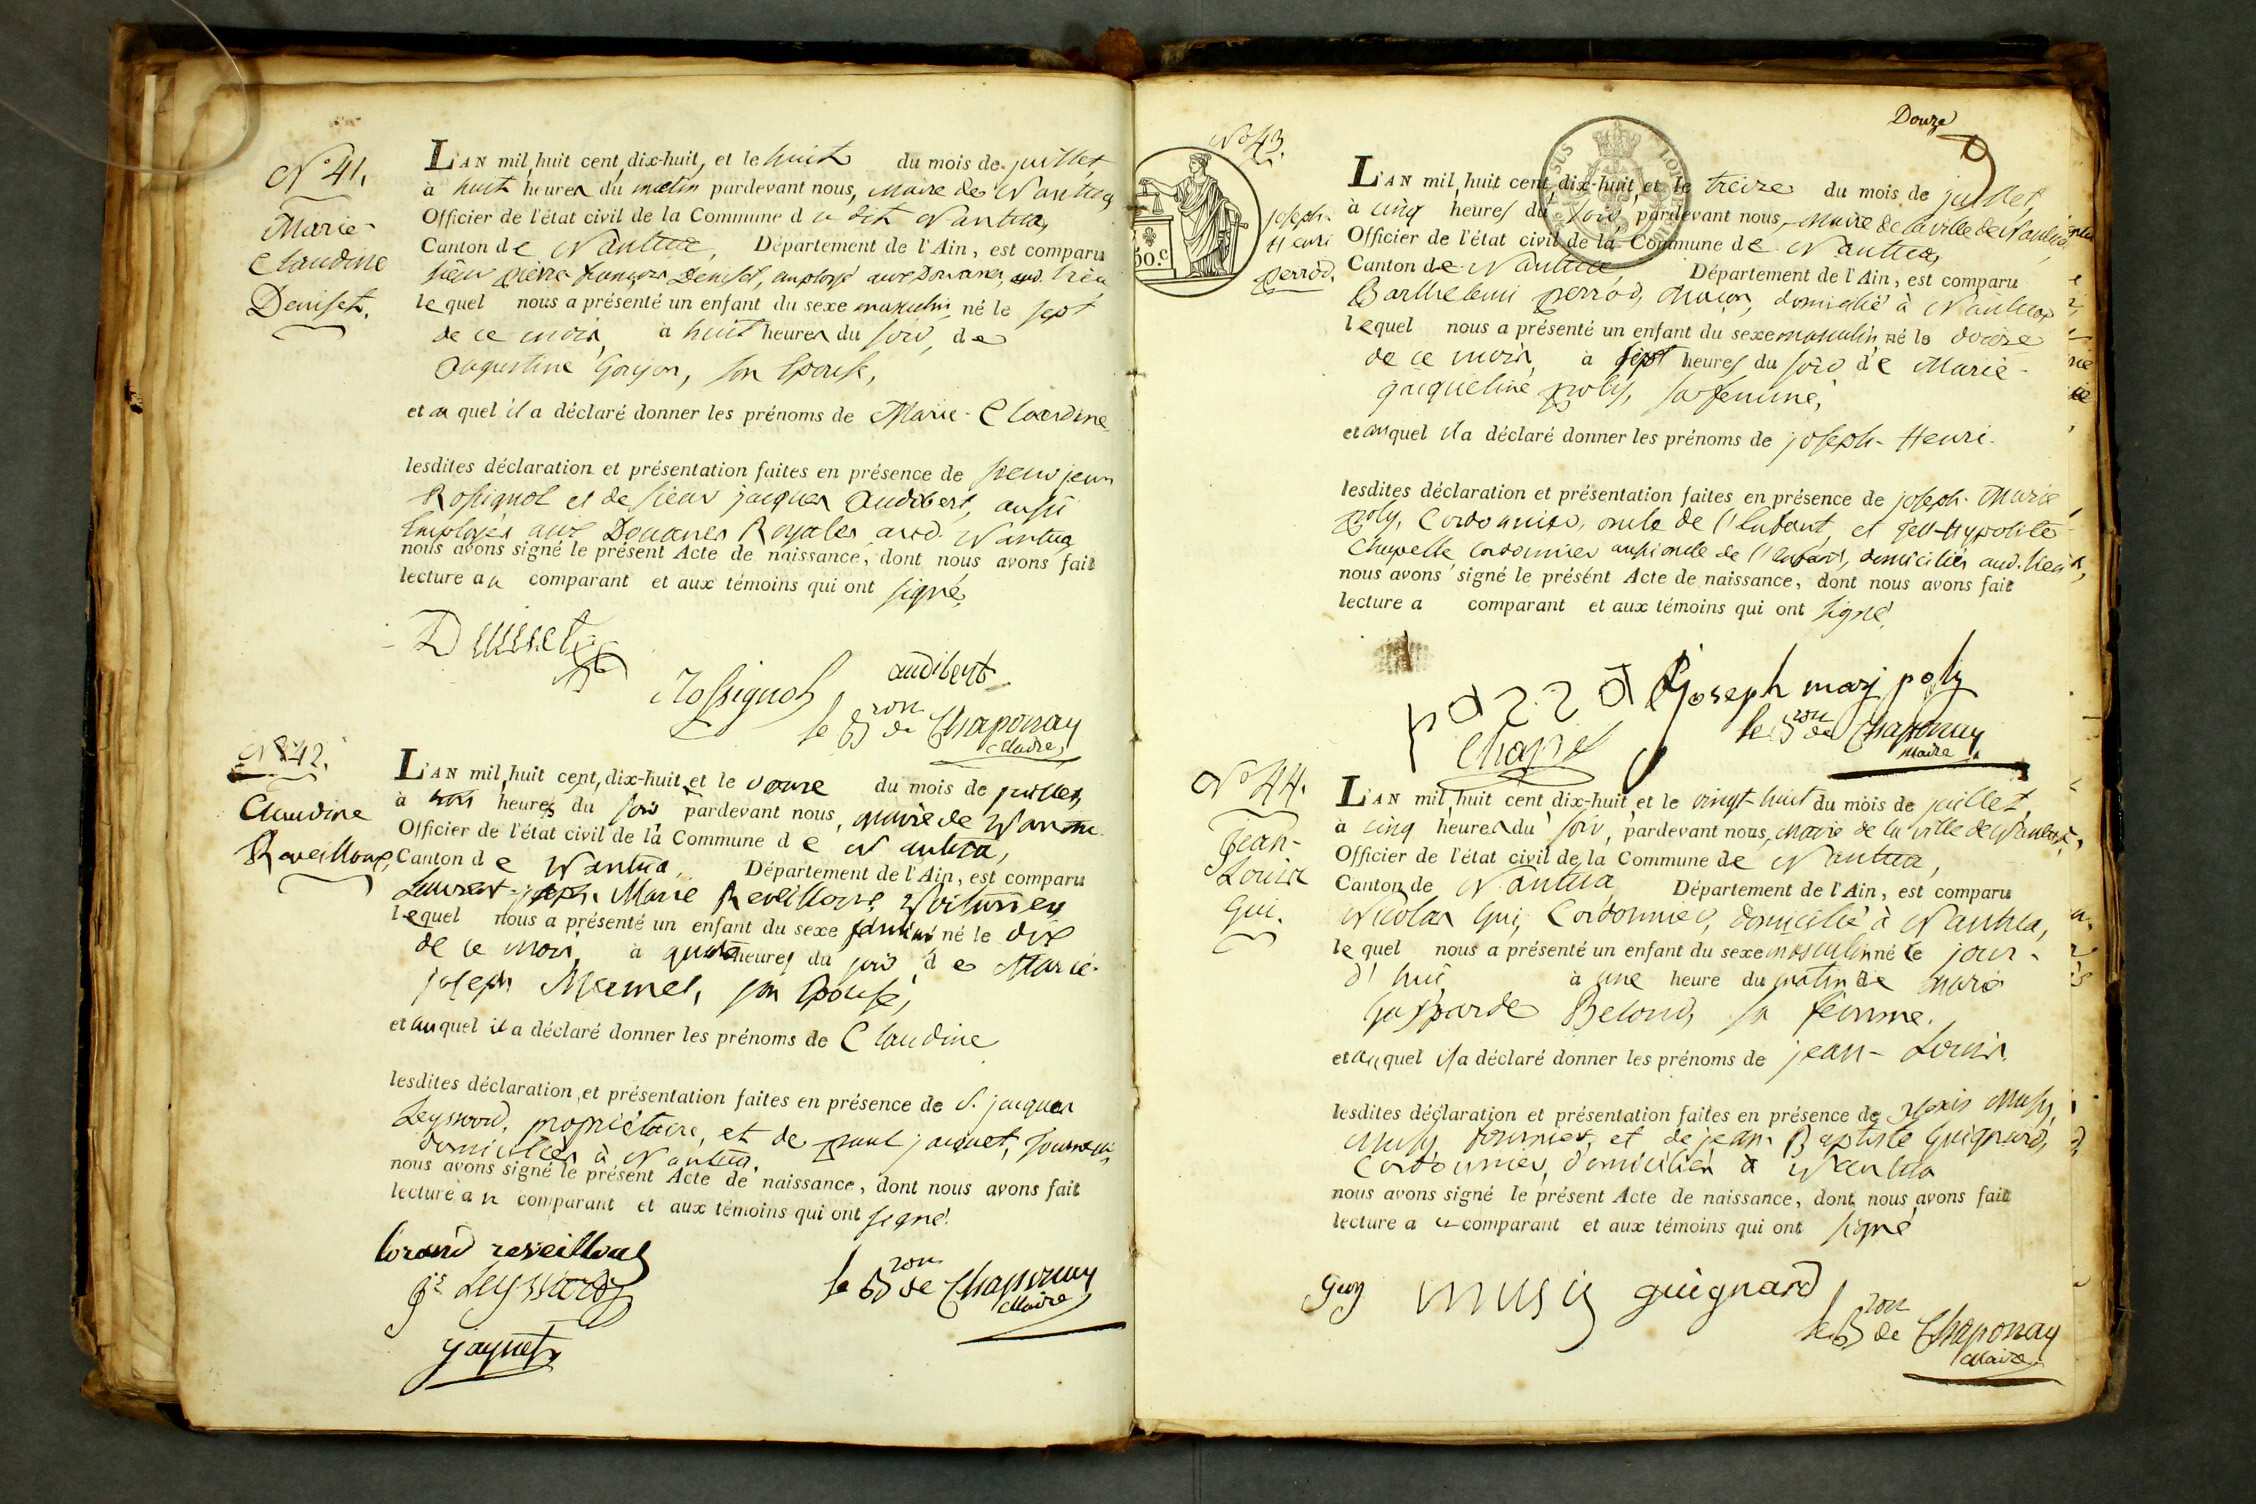 N° 41.
Marie-
Claudine
Deniset.
L'AN mil huit cent dix-huit, et le huit du mois de juillet,
à huit heures du matin pardevant nous, maire de Nantua
Officier de l'état civil de la Commune d u dit Nantua,
Canton de Nantua, Département de l'Ain, est comparu
sieur pierre françois Deniset, employé aux Douanes, aud. lieu
lequel nous a présenté un enfant du sexe masculin né le sept
de ce mois, à huit heures du soir, de
augustine Goujon, son Epouse,
et au quel il a déclaré donner les prénoms de Marie-Claudine
lesdites déclaration et présentation faites en présence de sieur jean
Rossignol et de sieur jacques audibert, aussi
Employés aux Douanes Royales aud. Nantua
nous avons signé le présent Acte de naissance, dont nous avons fait
lecture au comparant et aux témoins qui ont signé.
Deniset
Rossignol audibert
le Bron de Chaponay
Maire
N° 42.
Claudine
Reveilloux,
L'AN mil huit cent dix-huit et le douze du mois de juillet,
à trois heures du soir pardevant nous, maire de Nantua
Officier de l'état civil de la Commune de Nantua,
Canton de Nantua, Département de l'Ain, est comparu
Laurent-joseph Marie Reveilloux, Voiturier
lequel nous a présenté un enfant du sexe féminin né le dix
de ce mois, à quatre heures du soir de Marie-
joseph Mermet, son Epouse,
et auquel il a déclaré donner les prénoms de Claudine
lesdites déclaration et présentation faites en présence de S. jacques
Leyssard, propriétaire, et de paul jacquet,
domiciliés à Nantua.
nous avons signé le présent Acte de naissance, dont nous avons fait
lecture au comparant et aux témoins qui ont signé.
lorand reveilloux
Leyssard
le Bron de Chaponay
Maire
jaquet
Douze
N° 43.
joseph-
Henri
perrod.
L'AN mil huit cent dix-huit, et le treize du mois de juillet,
à cinq heures du soir, pardevant nous, Maire de la ville de Nantua,
Officier de l'état civil de la Commune de Nantua,
Canton de Nantua, Département de l'Ain, est comparu
Barthelemi perrod, maçon, domicilié à Nantua
lequel nous a présenté un enfant du sexe masculin, né le douze
de ce mois, à sept heures du soir de Marie-
jacqueline poly, sa femme,
et auquel il a déclaré donner les prénoms de joseph-Henri.
lesdites déclaration et présentation faites en présence de joseph-Marie
poly, Cordonnier, oncle de l'Enfant, et
Chapelle cordonnier aussi oncle de l'enfant, domiciliés aud. lieu,
nous avons signé le présent Acte de naissance, dont nous avons fait
lecture a comparant et aux témoins qui ont signé.
joseph mari poly
Chapel
le Bron de Chaponay
Maire
N° 44.
Jean-
Louis
Gui.
L'AN mil huit cent dix-huit et le vingt-huit du mois de juillet,
à cinq heures du soir, pardevant nous, Maire de la ville de Nantua,
Officier de l'état civil de la Commune de Nantua,
Canton de Nantua Département de l'Ain, est comparu
Nicolas Gui, Cordonnier, domicilié à Nantua,
lequel nous a présenté un enfant du sexe masculin né le jour-
d'hui à une heure du matin de marie
Gasparde Belond, sa femme.
et auquel il a déclaré donner les prénoms de jean-Louis.
lesdites déclaration et présentation faites en présence de Musy,
et de jean Baptiste Guignard,
Cordonnier, domiciliés à Nantua
nous avons signé le présent Acte de naissance, dont nous avons fait
lecture a u comparant et aux témoins qui ont signé
Guy musy guignard
le Bron de Chaponay
Maire